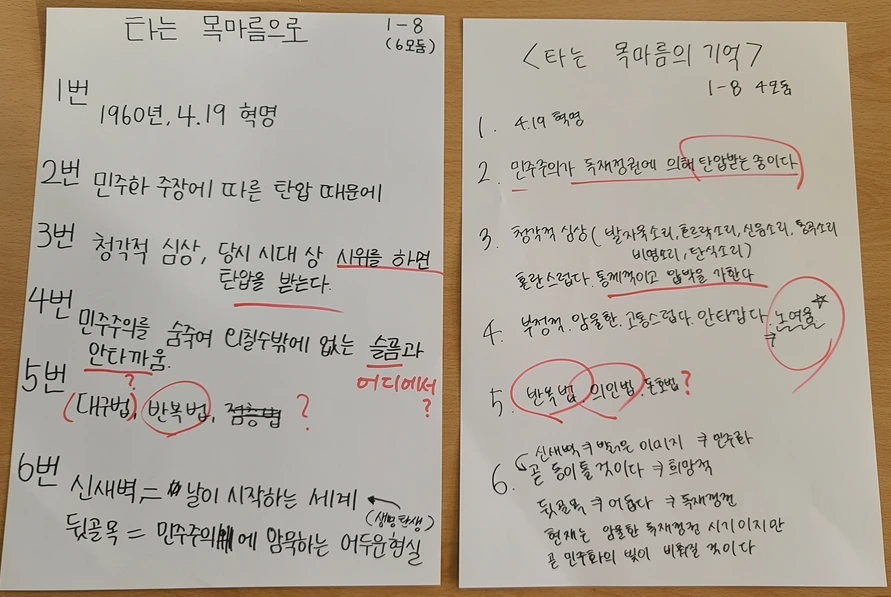 타는 목마름으로
1-8
(6모둠)
1번
1960년, 4.19 혁명
2번 민주화 주장에 따른 탄압 때문에
3번 청각적 심상, 당시 시대 상 시위를 하면
탄압을 받는다.
4번 민주주의를 숨죽여 외칠수밖에 없는 슬픔과
안타까움.
어디에서
?
5번
?
(대구법), 반복법, 점층법 ?
6번
신새벽 = 날이 시작하는 세계
(생명탄생)
뒷골목 = 민주주의에 암묵하는 어두운현실
<타는 목마름의 기억>
1-8 4모둠
1. 4.19 혁명
2. 민주주의가 독재정권에 의해 탄압받는 중이다
3. 청각적 심상 (발자욱소리, 호르락소리, 신음소리, 통곡소리
비명소리, 탄식소리)
혼란스럽다. 통제적이고 압박을 가한다
4. 부정적. 암울한. 고통스럽다. 안타깝다. 노여움
5. 반복법, 의인법, 돈호법 ?
6. 신새벽 → 밝은 이미지 → 민주화
곧 동이틀 것이다 → 희망적
뒷골목 → 어둡다 → 독재정권
현재는 암울한 독재정권 시기이지만
곧 민주화의 빛이 비춰질 것이다